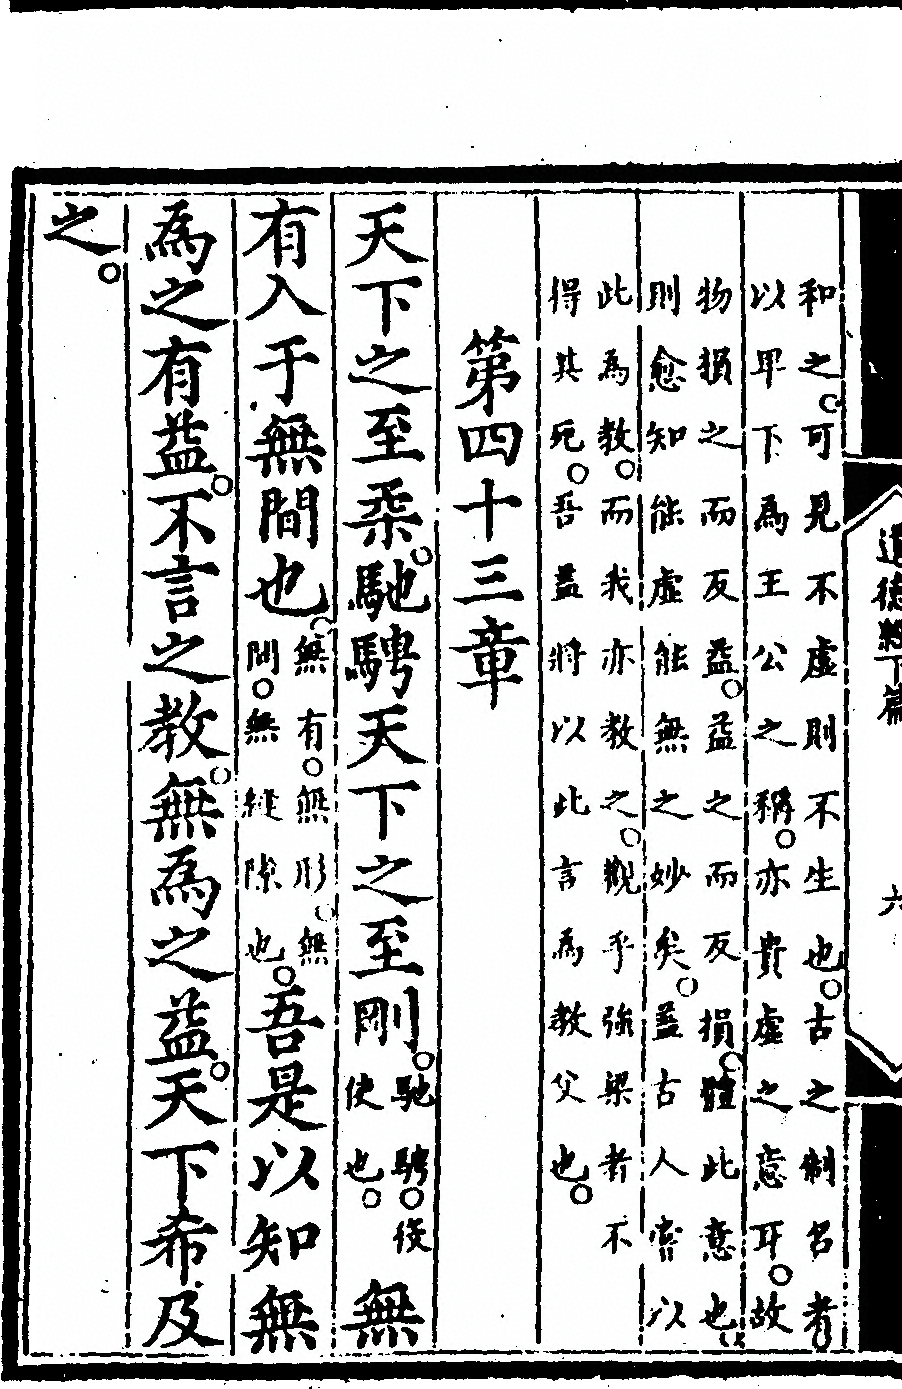 道德經下篇 六
和之。可見不虛則不生也。古之制名者。
以卑下為王公之稱。亦貴虛之意耳。故
物損之而反益。益之而反損。體此意也。
則愈知能虛能無之妙矣。蓋古人嘗以
此為教。而我亦教之。觀乎強梁者不
得其死。吾蓋將以此言為教父也。
第四十三章
天下之至柔。馳騁天下之至剛。馳騁。役使也。無
有入于無間也。無有。無形。無間。無縫隙也。吾是以知無
為之有益。不言之教。無為之益。天下希及
之。